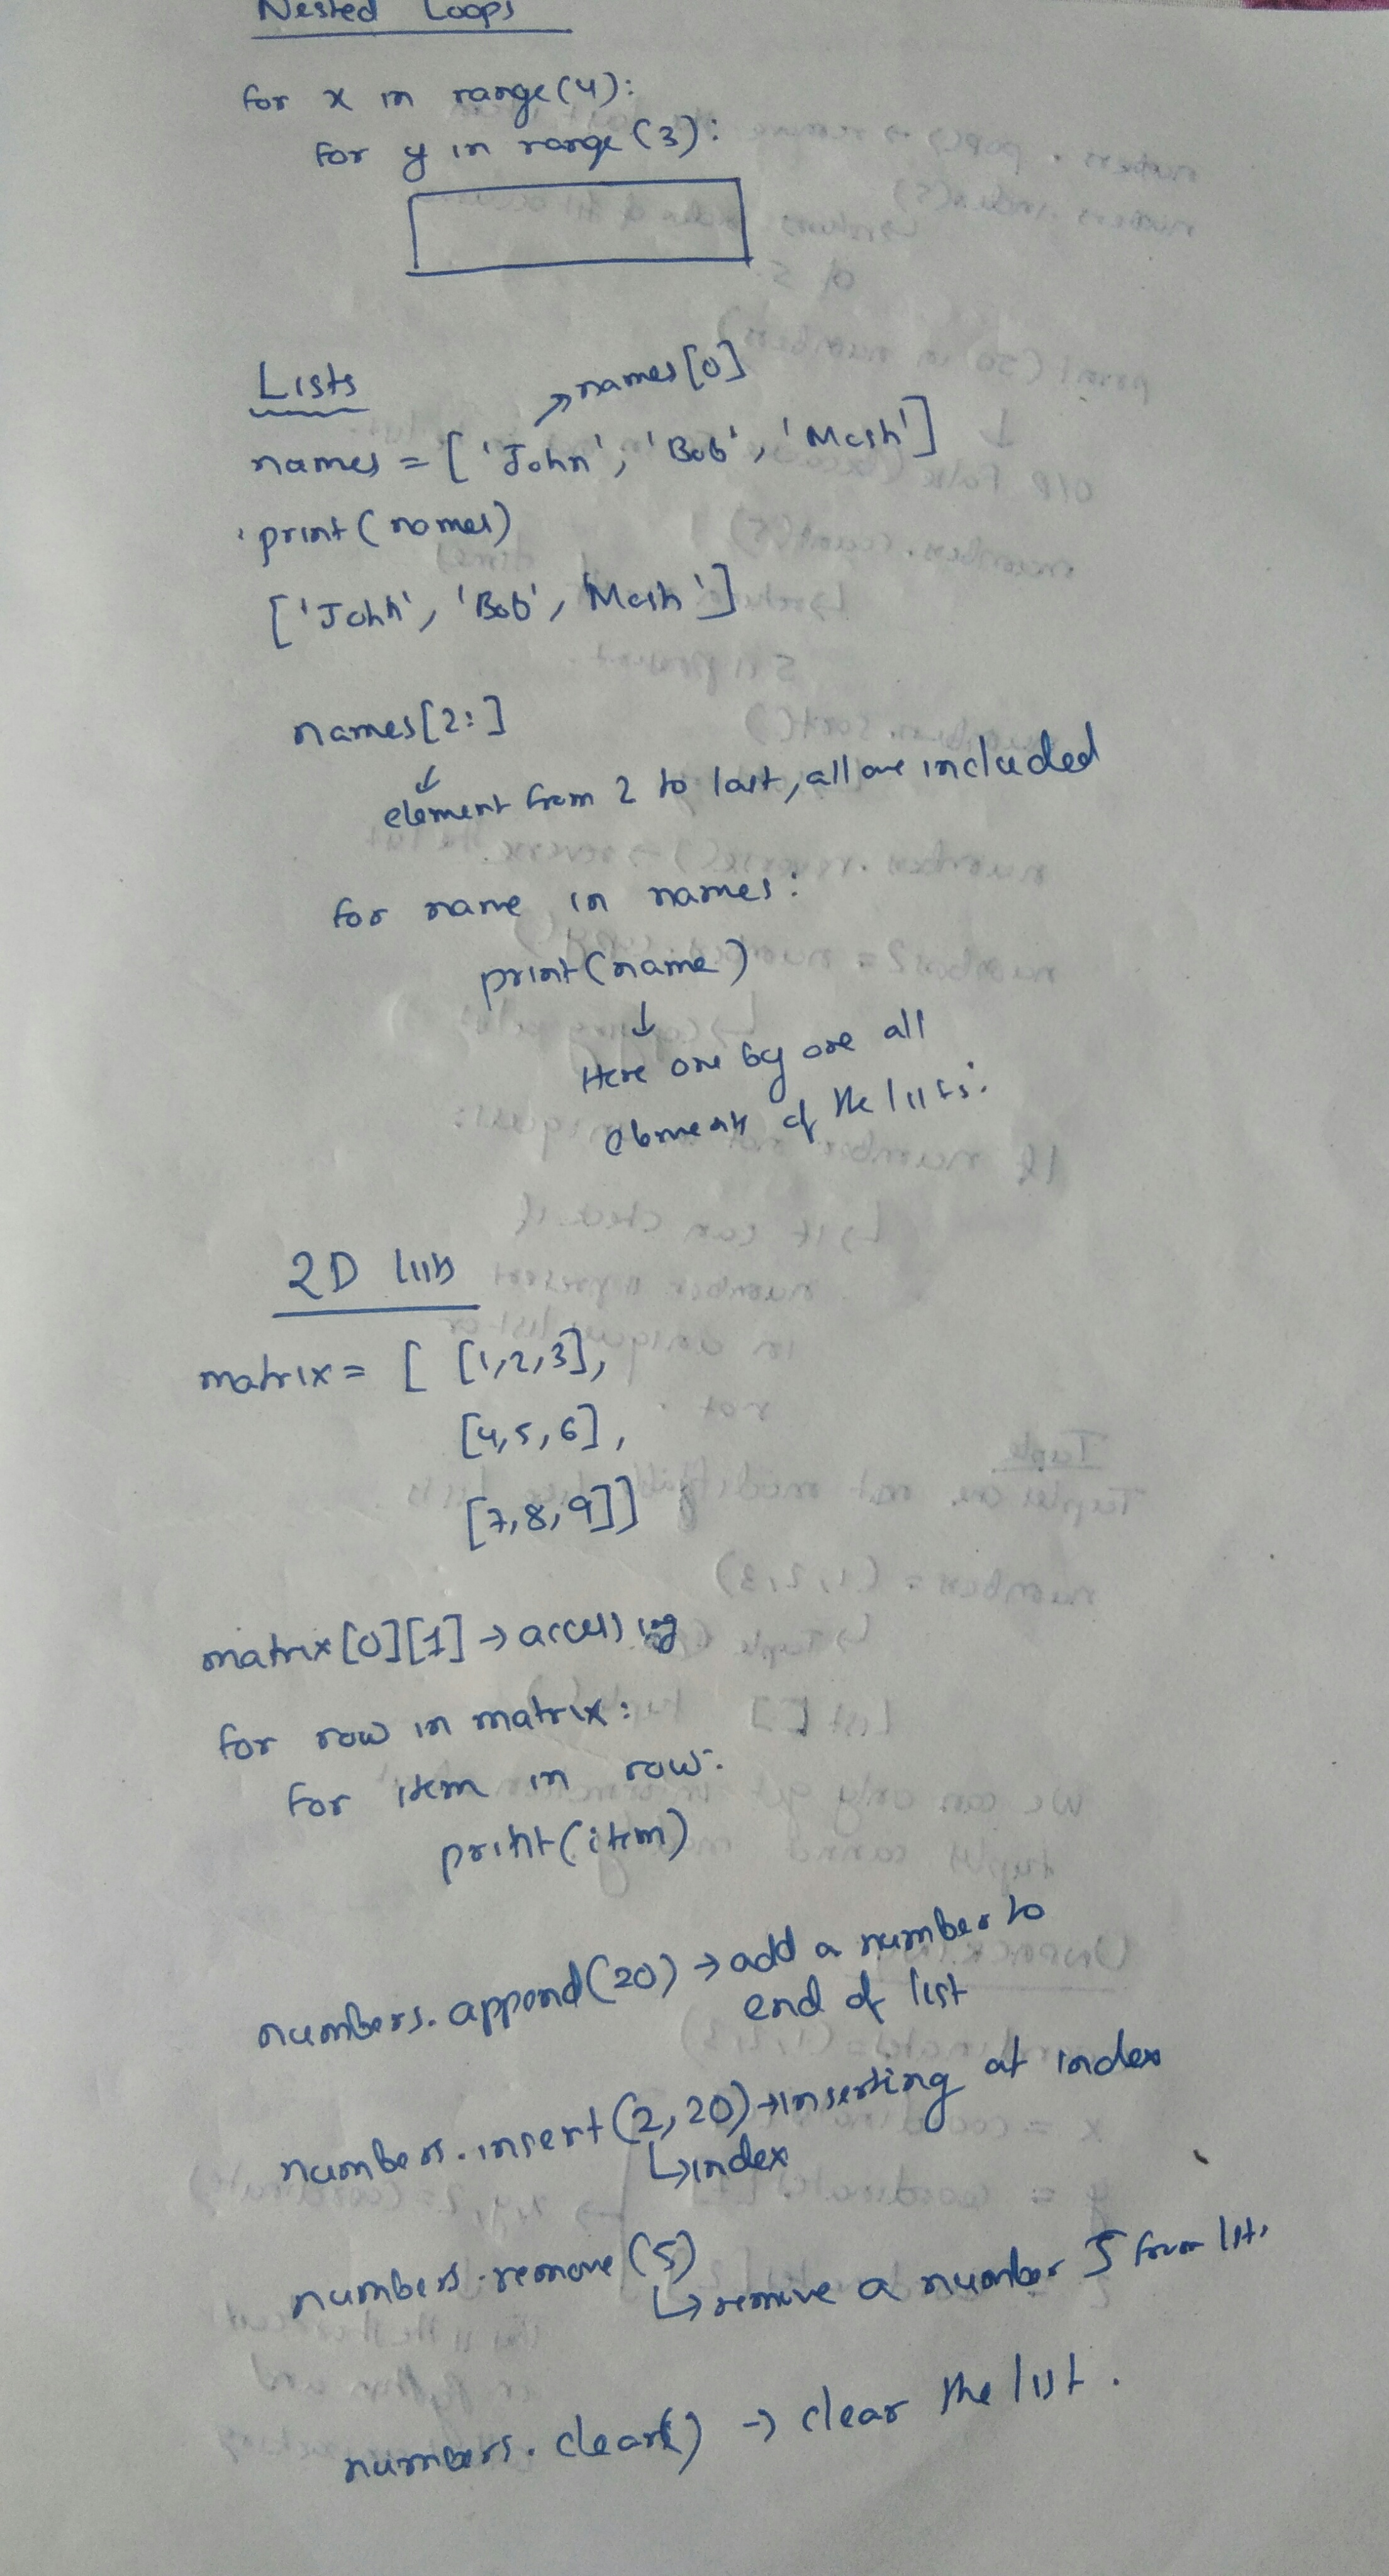 Nested Loops
for x in range(4):
for y in range(3):
Lists
→names[0]
names = ['John', 'Bob', 'Mosh']
print(names)
['John', 'Bob', 'Mosh']
names[2:]
↓
element from 2 to last, all are included
for name in names:
print(name)
↓
Here one by one all
elements of the lists.
2D lists
matrix = [ [1,2,3],
[4,5,6],
[7,8,9]]
matrix[0][1] → accessing
for row in matrix:
for item in row:
print(item)
numbers.append(20) → add a number to
end of list
numbers.insert(2,20) → inserting at index
↳ index
numbers.remove(5)
↳ remove a number 5 from list.
numbers.clear() → clear the list.